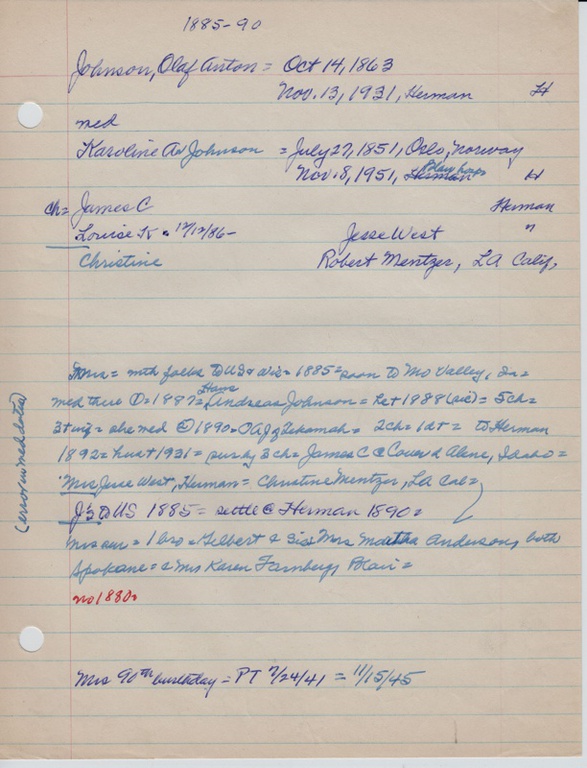 1885-90
Johnson, Olaf Anton = Oct 14, 1863
Nov. 13, 1931, Herman H
med
Karoline A Johnson = July 27, 1851, Oslo, Norway
Blair hosp
Nov. 8, 1951, Herman H
ch = James C Herman
Louise K = 12/12/86- Jesse West "
Christine Robert Mentzer, LA Calif,
Mrs = with folks to US & Wis = 1885 = soon to Mo Valley, Ia =
Hans
med there ① = 1887 = Andreas Johnson = he + 1888 (sic) = 5 ch =
3 + = she med @ 1890 = OAJ @ Tekamah = 2 ch = 1 d + = to Herman
1892 = hus + 1931 = surv by 3 ch = James C @ Couer d Alene, Idaho =
Mrs Jesse West, Herman = Christine Mentzer, LA Cal =
J's to US 1885 = settle @ Herman 1890 =
Mrs sur = 1 bro = Gilbert & sis Mrs Martha Anderson, both
Spokane = & Mrs Karen Farnberg, Blair =
(error in med dates)
no 1880 =
Mrs 90th birthday = PT 7/24/41 = 11/15/45